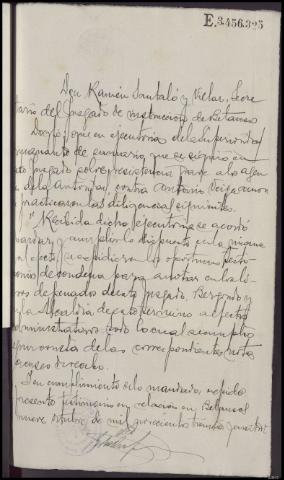 E.3456.325
Don Ramón Santaló y Villar, Secre
tario del Juzgado de instrucción de Betanzos
Doy fe: que en ejecutoria de la Superioridad
dimanante de sumario que se siguió en
este Juzgado sobre resistencia grave a la agen
de la autoridad, contra Antonio Veiga
practicaron las diligencias siguientes
Recibida dicha ejecutoria se acordó
guardar y cumplir lo dispuesto en la misma
al efecto, expedir los oportunos testi
monios de condena para anotar en los li
bros de penados de este Juzgado, Bergondo y
y la Alcaldía de este término al efecto
administrativo todo lo cual se cumplió
según consta de las correspondientes notas
Y en cumplimiento de lo mandado, expido
presente testimonio en relación en Betanzos
nueve octubre de mil novecientos treinta y